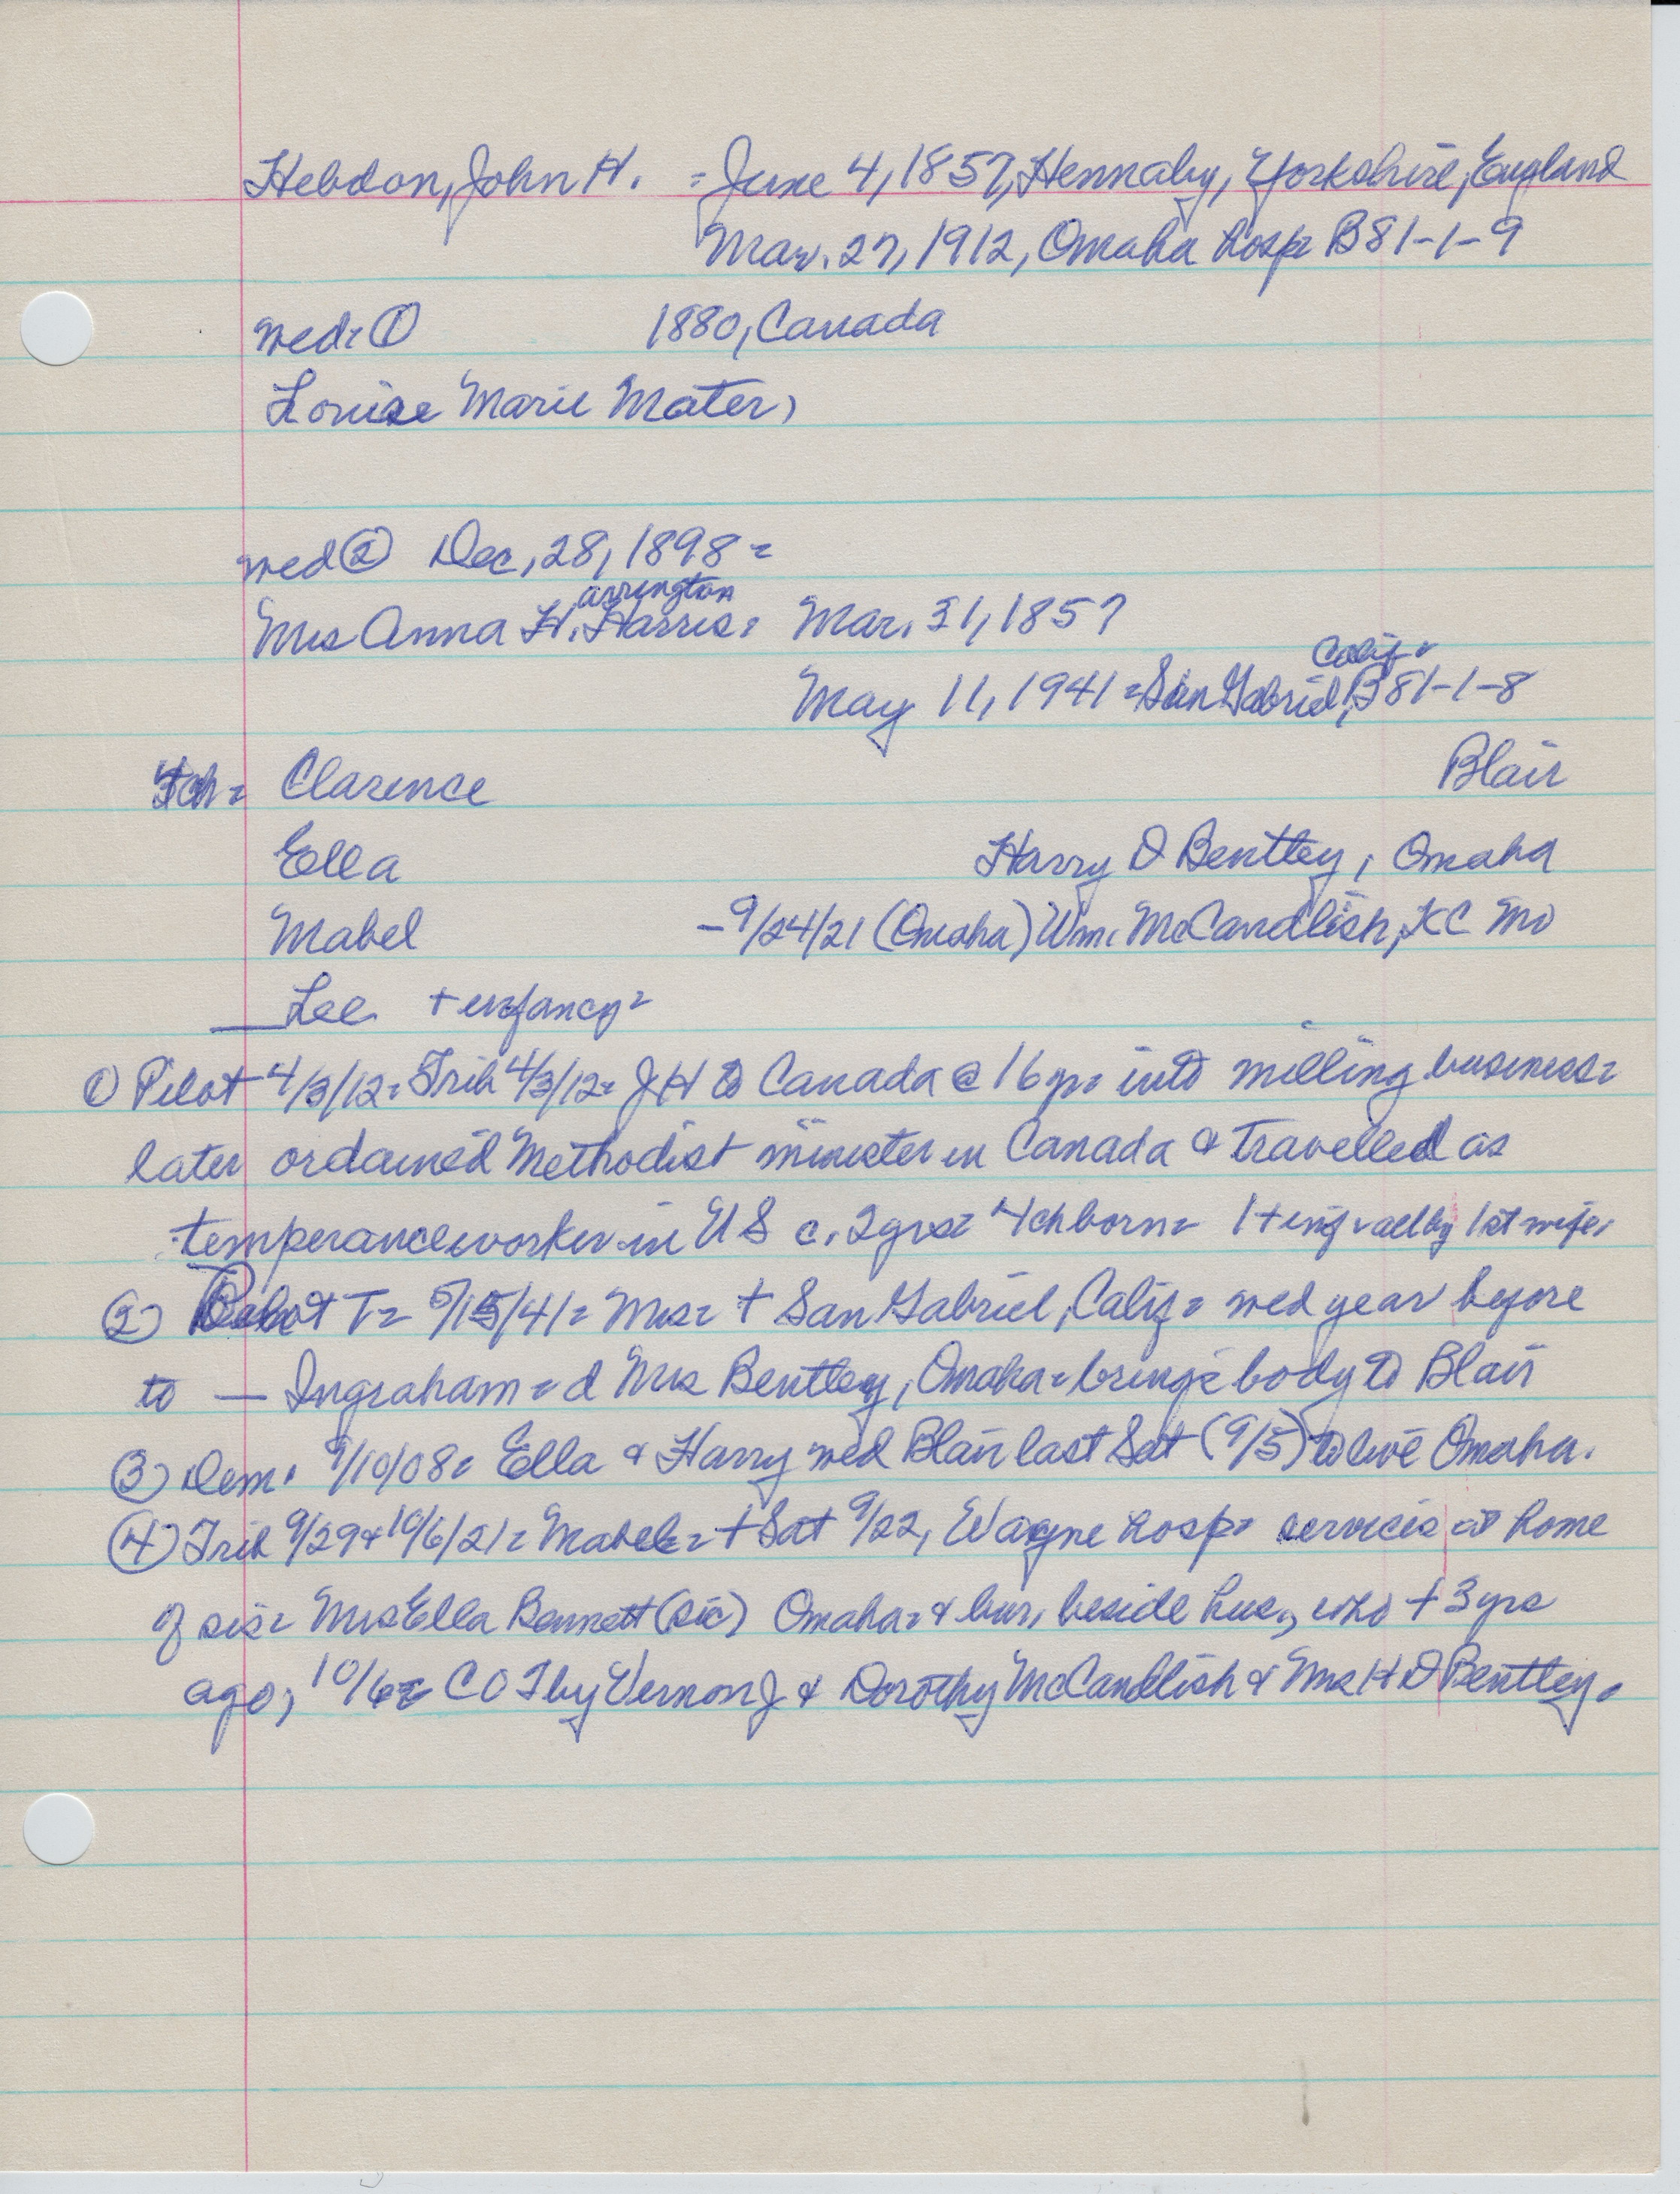 Hebdon, John H. = June 4, 1857, Hennaby, Yorkshire, England
Mar. 27, 1912, Omaha hosp= B81-1-9
wed= ① 1880, Canada
Louise Marie Mater,
wed ② Dec, 28, 1898=
arrington
Mrs Anna H. Harris= Mar. 31, 1857
Calif=
May 11, 1941=San Gabriel, B81-1-8
4ch= Clarence Blair
Ella Harry D Bentley, Omaha
Mabel -9/24/21 (Omaha) Wm. McCandlish, KC Mo
Lee + infancy=
① Pilot 4/3/12= Trib 4/3/12= JH to Canada @ 16 yr= into milling business=
later ordained Methodist minister in Canada & travelled as
temperance worker in US c. 2yrs= 4ch born= 1 + inf = all by 1st wife.
② T= 5/15/41= Mrs= + San Gabriel, Calif= wed year before
to — Ingraham= d Mrs Bentley, Omaha= brings body to Blair
③ Dem. 9/10/08= Ella & Harry wed Blair last Sat (9/5) to live Omaha.
④ Trib 9/29 & 10/6/21= Mabel= + Sat 9/22, Wayne hosp= services at home
of sis= Mrs Ella Bennett (sic) Omaha= & bur. beside hus., who + 3 yrs
ago, 10/6= C O T by Vernon J & Dorothy McCandlish & Mrs H D Bentley.